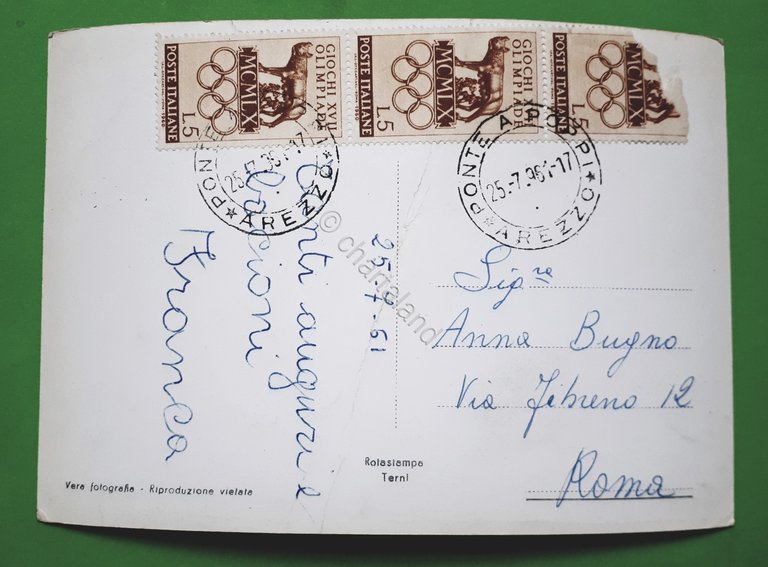 POSTE ITALIANE
MCMLX
GIOCHI XVII
OLIMPIADE
L.5
POSTE ITALIANE
MCMLX
GIOCHI XVII
OLIMPIADE
L.5
POSTE ITALIANE
MCMLX
L.5
PONTE A POPPI
25.-7.961-17
AREZZO
PONTE A POPPI
25.-7.961-17
AREZZO
25-7-61
Tanti auguri e
bacioni
Franca
Sig.ra
Anna Bugno
Via Tebreno 12
Roma
Rotastampa
Terni
Vera fotografia - Riproduzione vietata
© chartaland